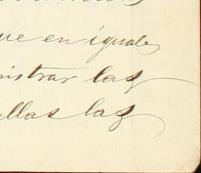 ue en iguales
nistrar las
ellas las